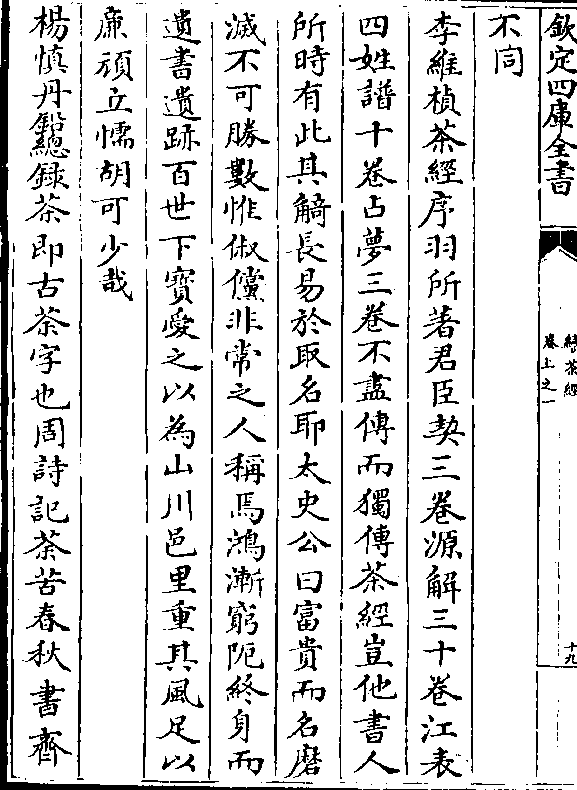 欽定四庫全書
續茶經
卷上之一
十九
不同
李維楨茶經序羽所著君臣契三卷源解三十卷江表
四姓譜十卷占夢三卷不盡傳而獨傳茶經豈他書人
所時有此其觭長易於取名耶太史公曰富貴而名磨
滅不可勝數惟俶儻非常之人稱焉鴻漸窮阨終身而
遺書遺跡百世下寶愛之以為山川邑里重其風足以
廉頑立懦胡可少哉
楊慎丹鉛總録茶即古荼字也周詩記荼苦春秋書齊